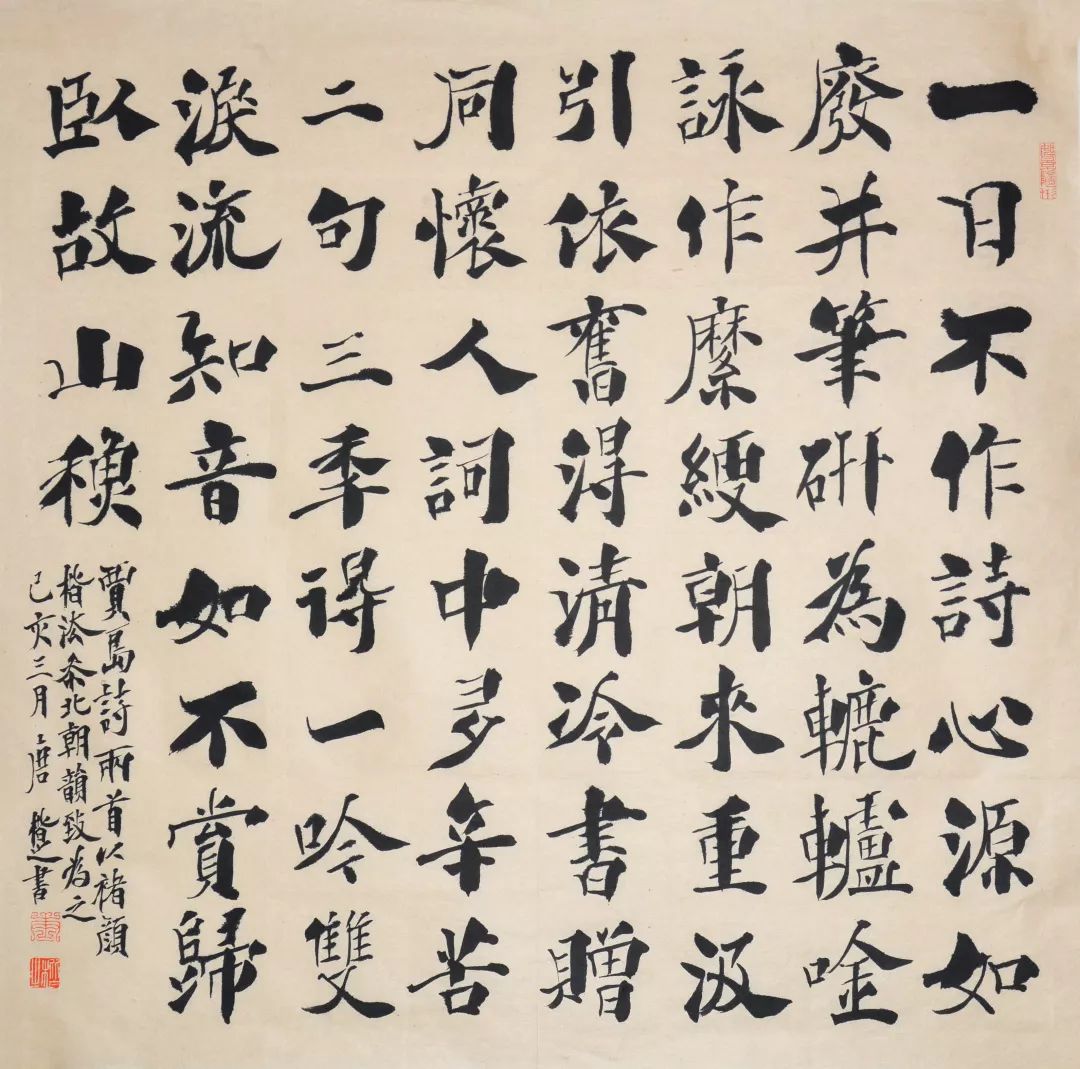 一日不作詩心源如
廢井筆硏為轆轤唫
詠作縻綆朝來重汲
引依舊得清冷書贈
同懷人詞中多辛苦
二句三季得一吟雙
淚流知音如不賞歸
臥故山穐
賈島詩兩首以褚顏
楷法参北朝韻致為之
己亥三月唐楷之書